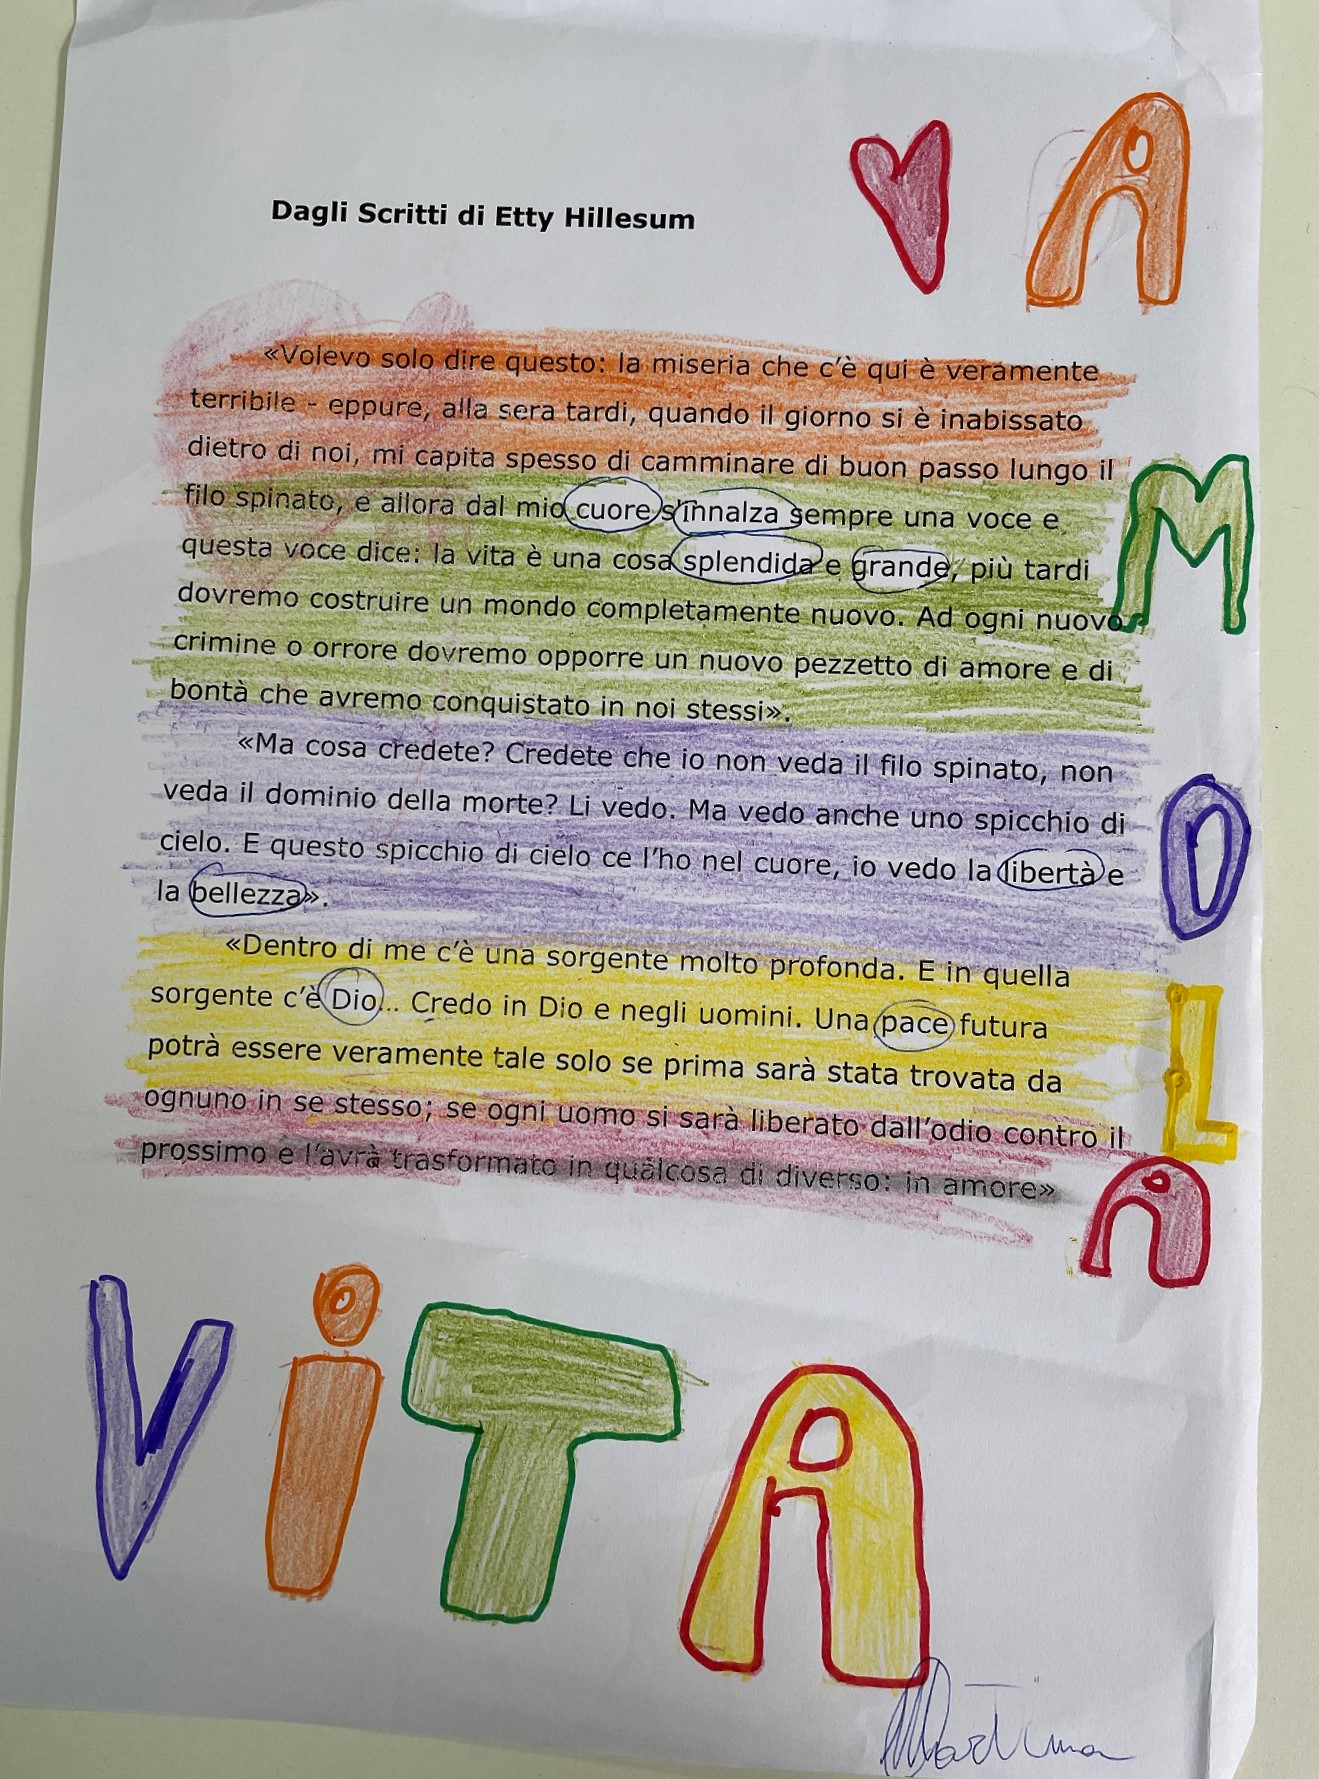 Dagli Scritti di Etty Hillesum
«Volevo solo dire questo: la miseria che c'è qui è veramente
terribile - eppure, alla sera tardi, quando il giorno si è inabissato
dietro di noi, mi capita spesso di camminare di buon passo lungo il
filo spinato, e allora dal mio cuore s'innalza sempre una voce e
questa voce dice: la vita è una cosa splendida e grande, più tardi
dovremo costruire un mondo completamente nuovo. Ad ogni nuovo
crimine o orrore dovremo opporre un nuovo pezzetto di amore e di
bontà che avremo conquistato in noi stessi».
«Ma cosa credete? Credete che io non veda il filo spinato, non
veda il dominio della morte? Li vedo. Ma vedo anche uno spicchio di
cielo. E questo spicchio di cielo ce l'ho nel cuore, io vedo la libertà e
la bellezza».
«Dentro di me c'è una sorgente molto profonda. E in quella
sorgente c'è Dio... Credo in Dio e negli uomini. Una pace futura
potrà essere veramente tale solo se prima sarà stata trovata da
ognuno in se stesso; se ogni uomo si sarà liberato dall'odio contro il
prossimo e l'avrà trasformato in qualcosa di diverso: in amore»
A
M
O
L
A
ViTA
Martina